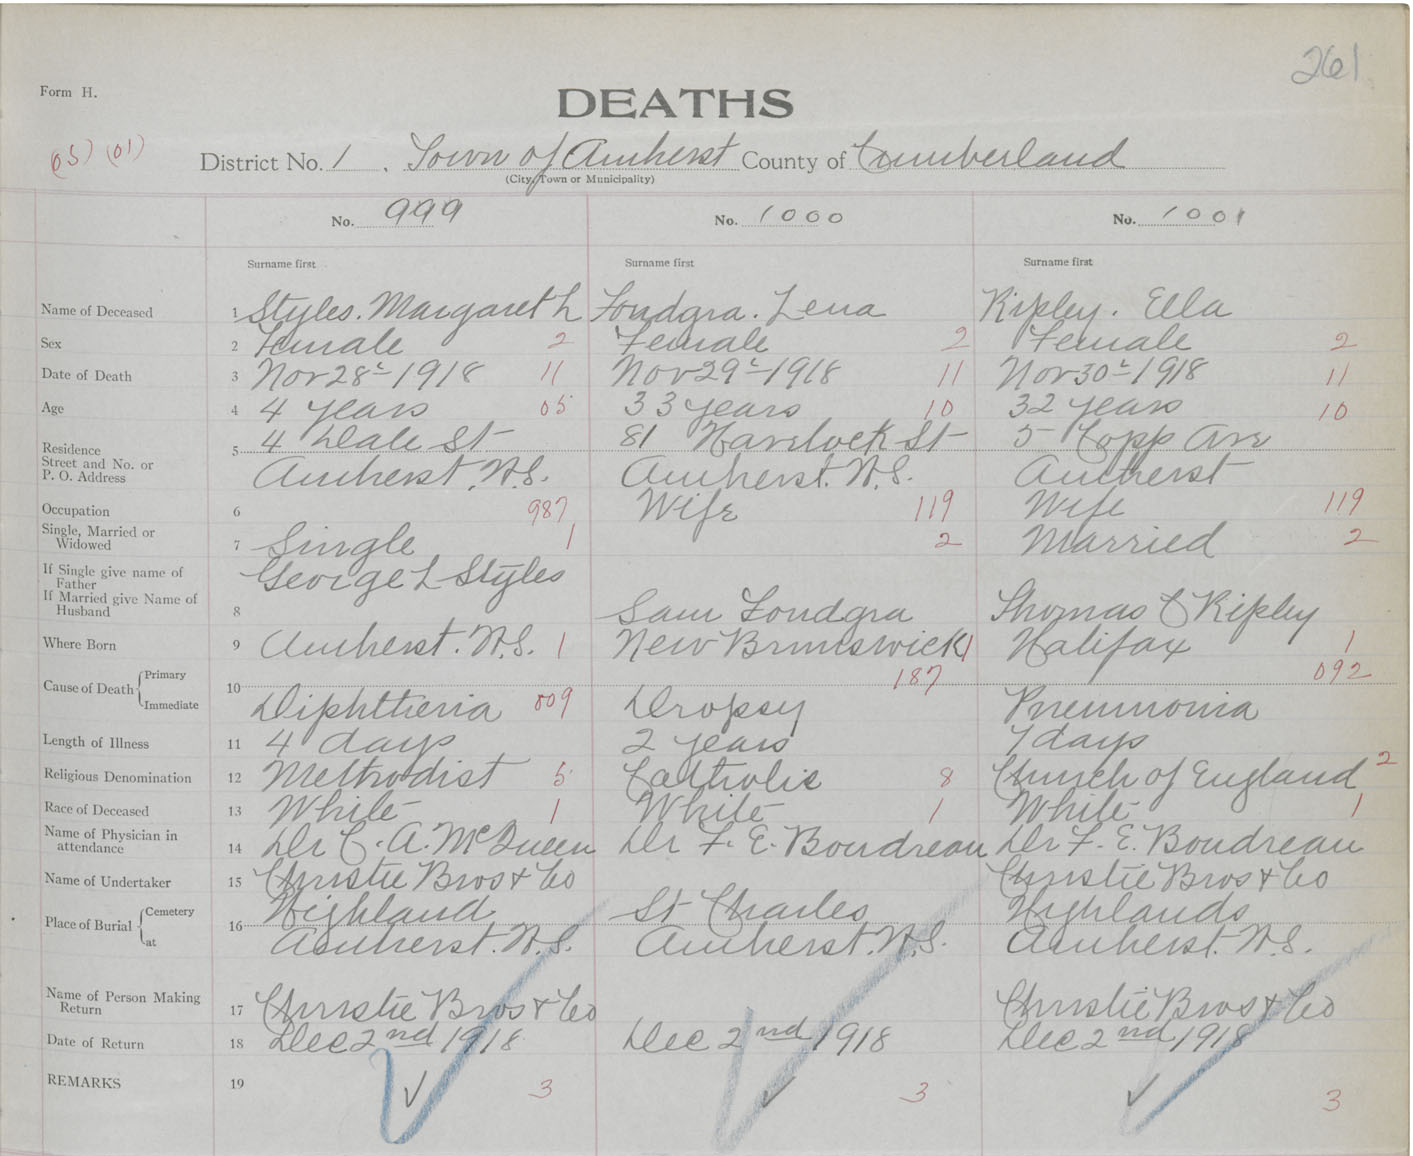 261
Form H.
DEATHS
(05) (01)
District No. 1, Town of Amherst County of Cumberland
(City, Town or Municipality)
No. 999 No. 1000 No. 1001
Surname first Surname first Surname first
Name of Deceased 1 Styles. Margaret L Fondgra. Lena Ripley. Ella
Sex 2 Female 2 Female 2 Female 2
Date of Death 3 Nov 28th 1918 11 Nov 29th 1918 11 Nov 30th 1918 11
Age 4 4 years 05 33 years 10 32 years 10
Residence 5 4 Dale St 81 Havelock St 5 Copp Ave
Street and No. or
P. O. Address Amherst. N.S. Amherst. N.S. Amherst
Occupation 6 987 Wife 119 Wife 119
Single, Married or
Widowed 7 Single 1 2 Married 2
If Single give name of
Father George L Styles
If Married give Name of
Husband 8 Sam Fondgra Thomas C Ripley
Where Born 9 Amherst. N.S. 1 New Brunswick 1 Halifax 1
Cause of Death Primary 10 187 092
Immediate Diphtheria 009 Dropsy Pneumonia
Length of Illness 11 4 days 2 years 7 days
Religious Denomination 12 Methodist 5 Catholic 8 Church of England 2
Race of Deceased 13 White 1 White 1 White 1
Name of Physician in
attendance 14 Dr C. A. McQueen Dr F. E. Boudreau Dr F. E. Boudreau
Name of Undertaker 15 Christie Bros & Co Christie Bros & Co
Place of Burial Cemetery 16 Highland St Charles Highlands
at Amherst. N.S. Amherst. N.S. Amherst. N.S.
Name of Person Making
Return 17 Christie Bros & Co Christie Bros & Co
Date of Return 18 Dec 2nd 1918 Dec 2nd 1918 Dec 2nd 1918
REMARKS 19 ✓ 3 ✓ 3 ✓ 3